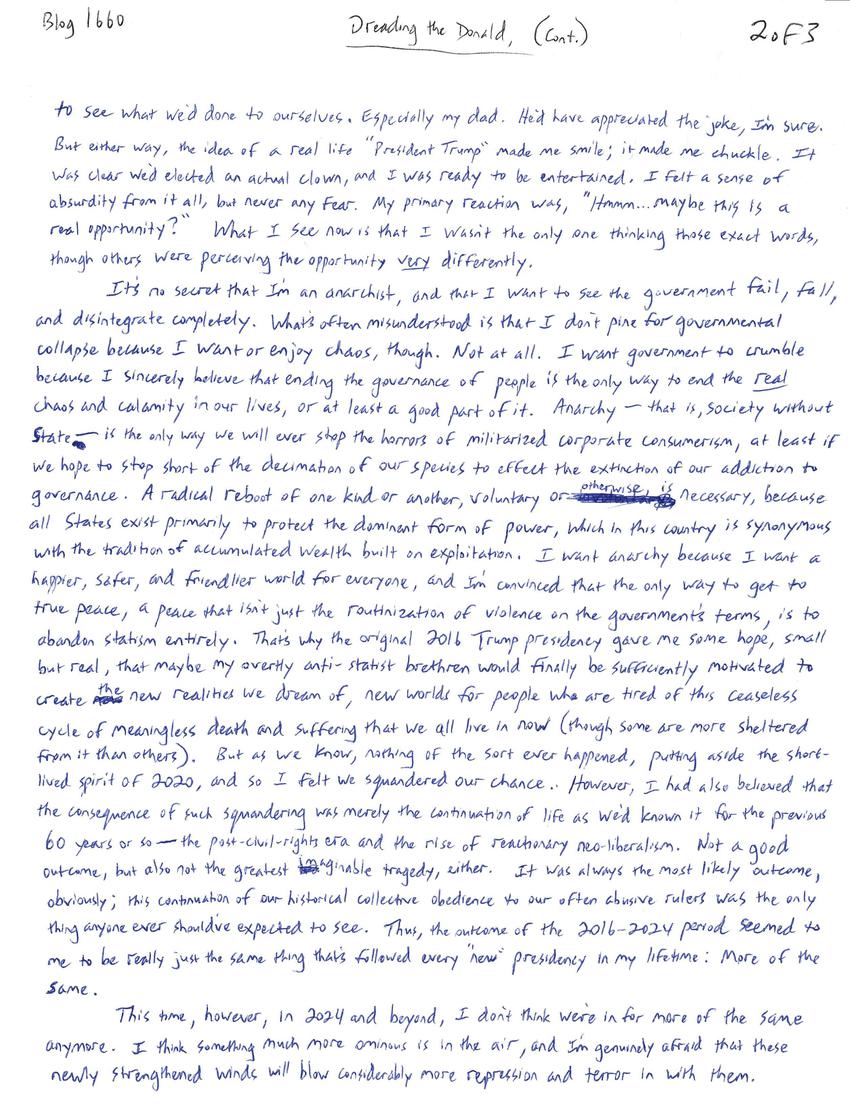 Blog 1660
Dreading the Donald, (Cont.)
2 of 3
to see what we'd done to ourselves. Especially my dad. He'd have appreciated the joke, I'm sure.
But either way, the idea of a real life "President Trump" made me smile; it made me chuckle. It
was clear we'd elected an actual clown, and I was ready to be entertained. I felt a sense of
absurdity from it all, but never any fear. My primary reaction was, "Hmmm... maybe this is a
real opportunity?" What I see now is that I wasn't the only one thinking those exact words,
though others were perceiving the opportunity very differently.
It's no secret that I'm an anarchist, and that I want to see the government fail, fall,
and disintegrate completely. What's often misunderstood is that I don't pine for governmental
collapse because I want or enjoy chaos, though. Not at all. I want government to crumble
because I sincerely believe that ending the governance of people is the only way to end the real
chaos and calamity in our lives, or at least a good part of it. Anarchy — that is, society without
State — is the only way we will ever stop the horrors of militarized corporate consumerism, at least if
we hope to stop short of the decimation of our species to effect the extinction of our addiction to
governance. A radical reboot of one kind or another, voluntary or otherwise, is necessary, because
all States exist primarily to protect the dominant form of power, which in this country is synonymous
with the tradition of accumulated wealth built on exploitation. I want anarchy because I want a
happier, safer, and friendlier world for everyone, and I'm convinced that the only way to get to
true peace, a peace that isn't just the routinization of violence on the government's terms, is to
abandon statism entirely. That's why the original 2016 Trump presidency gave me some hope, small
but real, that maybe my overtly anti-statist brethren would finally be sufficiently motivated to
create the new realities we dream of, new worlds for people who are tired of this ceaseless
cycle of meaningless death and suffering that we all live in now (though some are more sheltered
from it than others). But as we know, nothing of the sort ever happened, putting aside the short-
lived spirit of 2020, and so I felt we squandered our chance.. However, I had also believed that
the consequence of such squandering was merely the continuation of life as we'd known it for the previous
60 years or so — the post-civil-rights era and the rise of reactionary neo-liberalism. Not a good
outcome, but also not the greatest imaginable tragedy, either. It was always the most likely outcome,
obviously; this continuation of our historical collective obedience to our often abusive rulers was the only
thing anyone ever should've expected to see. Thus, the outcome of the 2016-2024 period seemed to
me to be really just the same thing that's followed every "new" presidency in my lifetime: More of the
same.
This time, however, in 2024 and beyond, I don't think we're in for more of the same
anymore. I think something much more ominous is in the air, and I'm genuinely afraid that these
newly strengthened winds will blow considerably more repression and terror in with them.